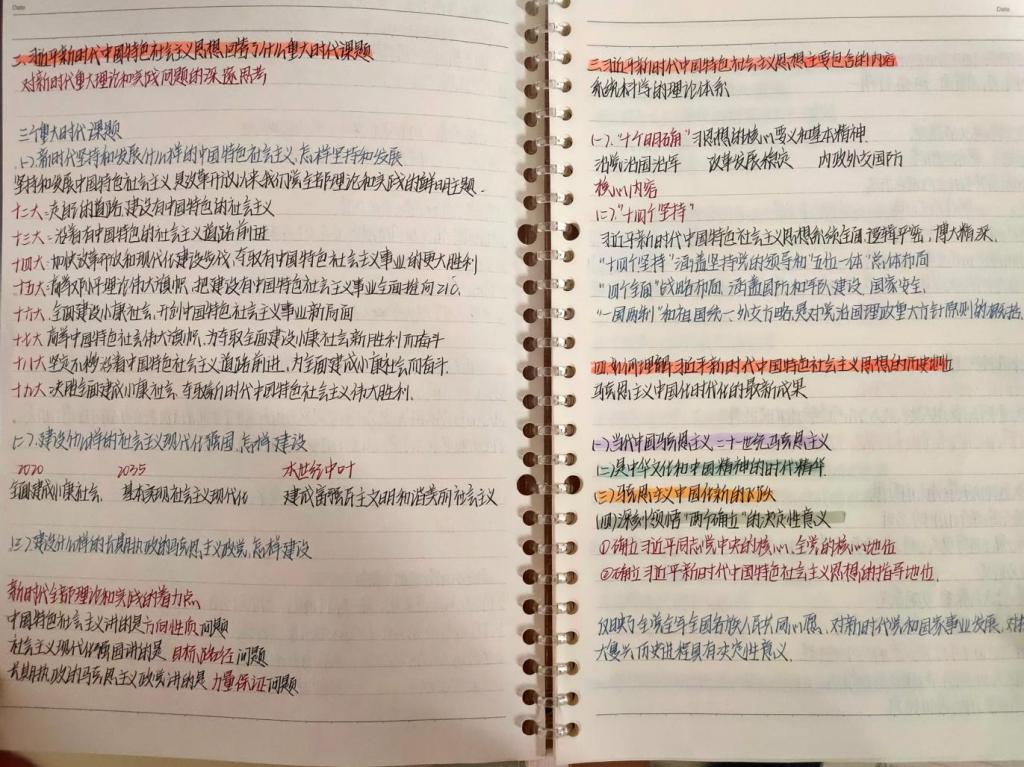 Date
二、习近平新时代中国特色社会主义思想回答了什么重大时代课题
对新时代重大理论和实践问题的深邃思考
三个重大时代课题
(一)新时代坚持和发展什么样的中国特色社会主义、怎样坚持和发展
坚持和发展中国特色社会主义是改革开放以来我们党全部理论和实践的鲜明主题.
十二大:走自的道路,建设有中国特色的社会主义
十三大:沿着有中国特色的社会主义道路前进
十四大:加快改革开放和现代化建设步伐,夺取有中国特色社会主义事业的更大胜利
十五大:高举邓小平理论伟大旗帜,把建设有中国特色社会主义事业全面推向21C.
十六大:全面建设小康社会,开创中国特色社会主义事业新局面
十七大:高举中国特色社会伟大旗帜,为夺取全面建设小康社会新胜利而奋斗
十八大:坚定不移沿着中国特色社会主义道路前进,为全面建成小康社会而奋斗.
十九大:决胜全面建成小康社会,夺取新时代中国特色社会主义伟大胜利.
(二)、建设什么样的社会主义现代化强国、怎样建设
2020 2035 本世纪中叶
全面建成小康社会. 基本实现社会主义现代化 建成富强民主文明和谐美丽社会主义
(三)建设什么样的长期执政的马克思主义政党,怎样建设
新时代全部理论和实践的着力点
中国特色社会主义讲的是方向性质问题
社会主义现代化强国讲的是 目标、路径问题
长期执政的马克思主义政党讲的是 力量保证问题
Date
三、习近平新时代中国特色社会主义思想主要包含的内容
系统科学的理论体系
(一)、"十个明确" 习思想的核心要义和基本精神.
治党治国治军 改革发展稳定 内政外交国防
核心内容
(二)、"十四个坚持"
习近平新时代中国特色社会主义思想系统全面、逻辑严密、博大精深.
"十四个坚持"涵盖坚持党的领导和"五位一体"总体布局
"四个全面"战略布局,涵盖国防和军队建设、国家安全、
"一国两制"和祖国统一、外交方略,是对党治国理政重大方针原则的
四.如何理解习近平新时代中国特色社会主义思想的历史地位
马克思主义中国化时代化的最新成果
(一)当代中国马克思主义、二十一世纪马克思主义
(二)是中华文化和中国精神的时代精华
(三)马克思主义中国化新的飞跃
(四)深刻领悟"两个确立"的决定性意义
①确立习近平同志党中央的核心、全党的核心地位
②确立习近平新时代中国特色社会主义思想的指导地位.
反映了全党全军全国各族人民共同心愿、对新时代党和国家事业发展、对
大复兴历史进程具有决定性意义.